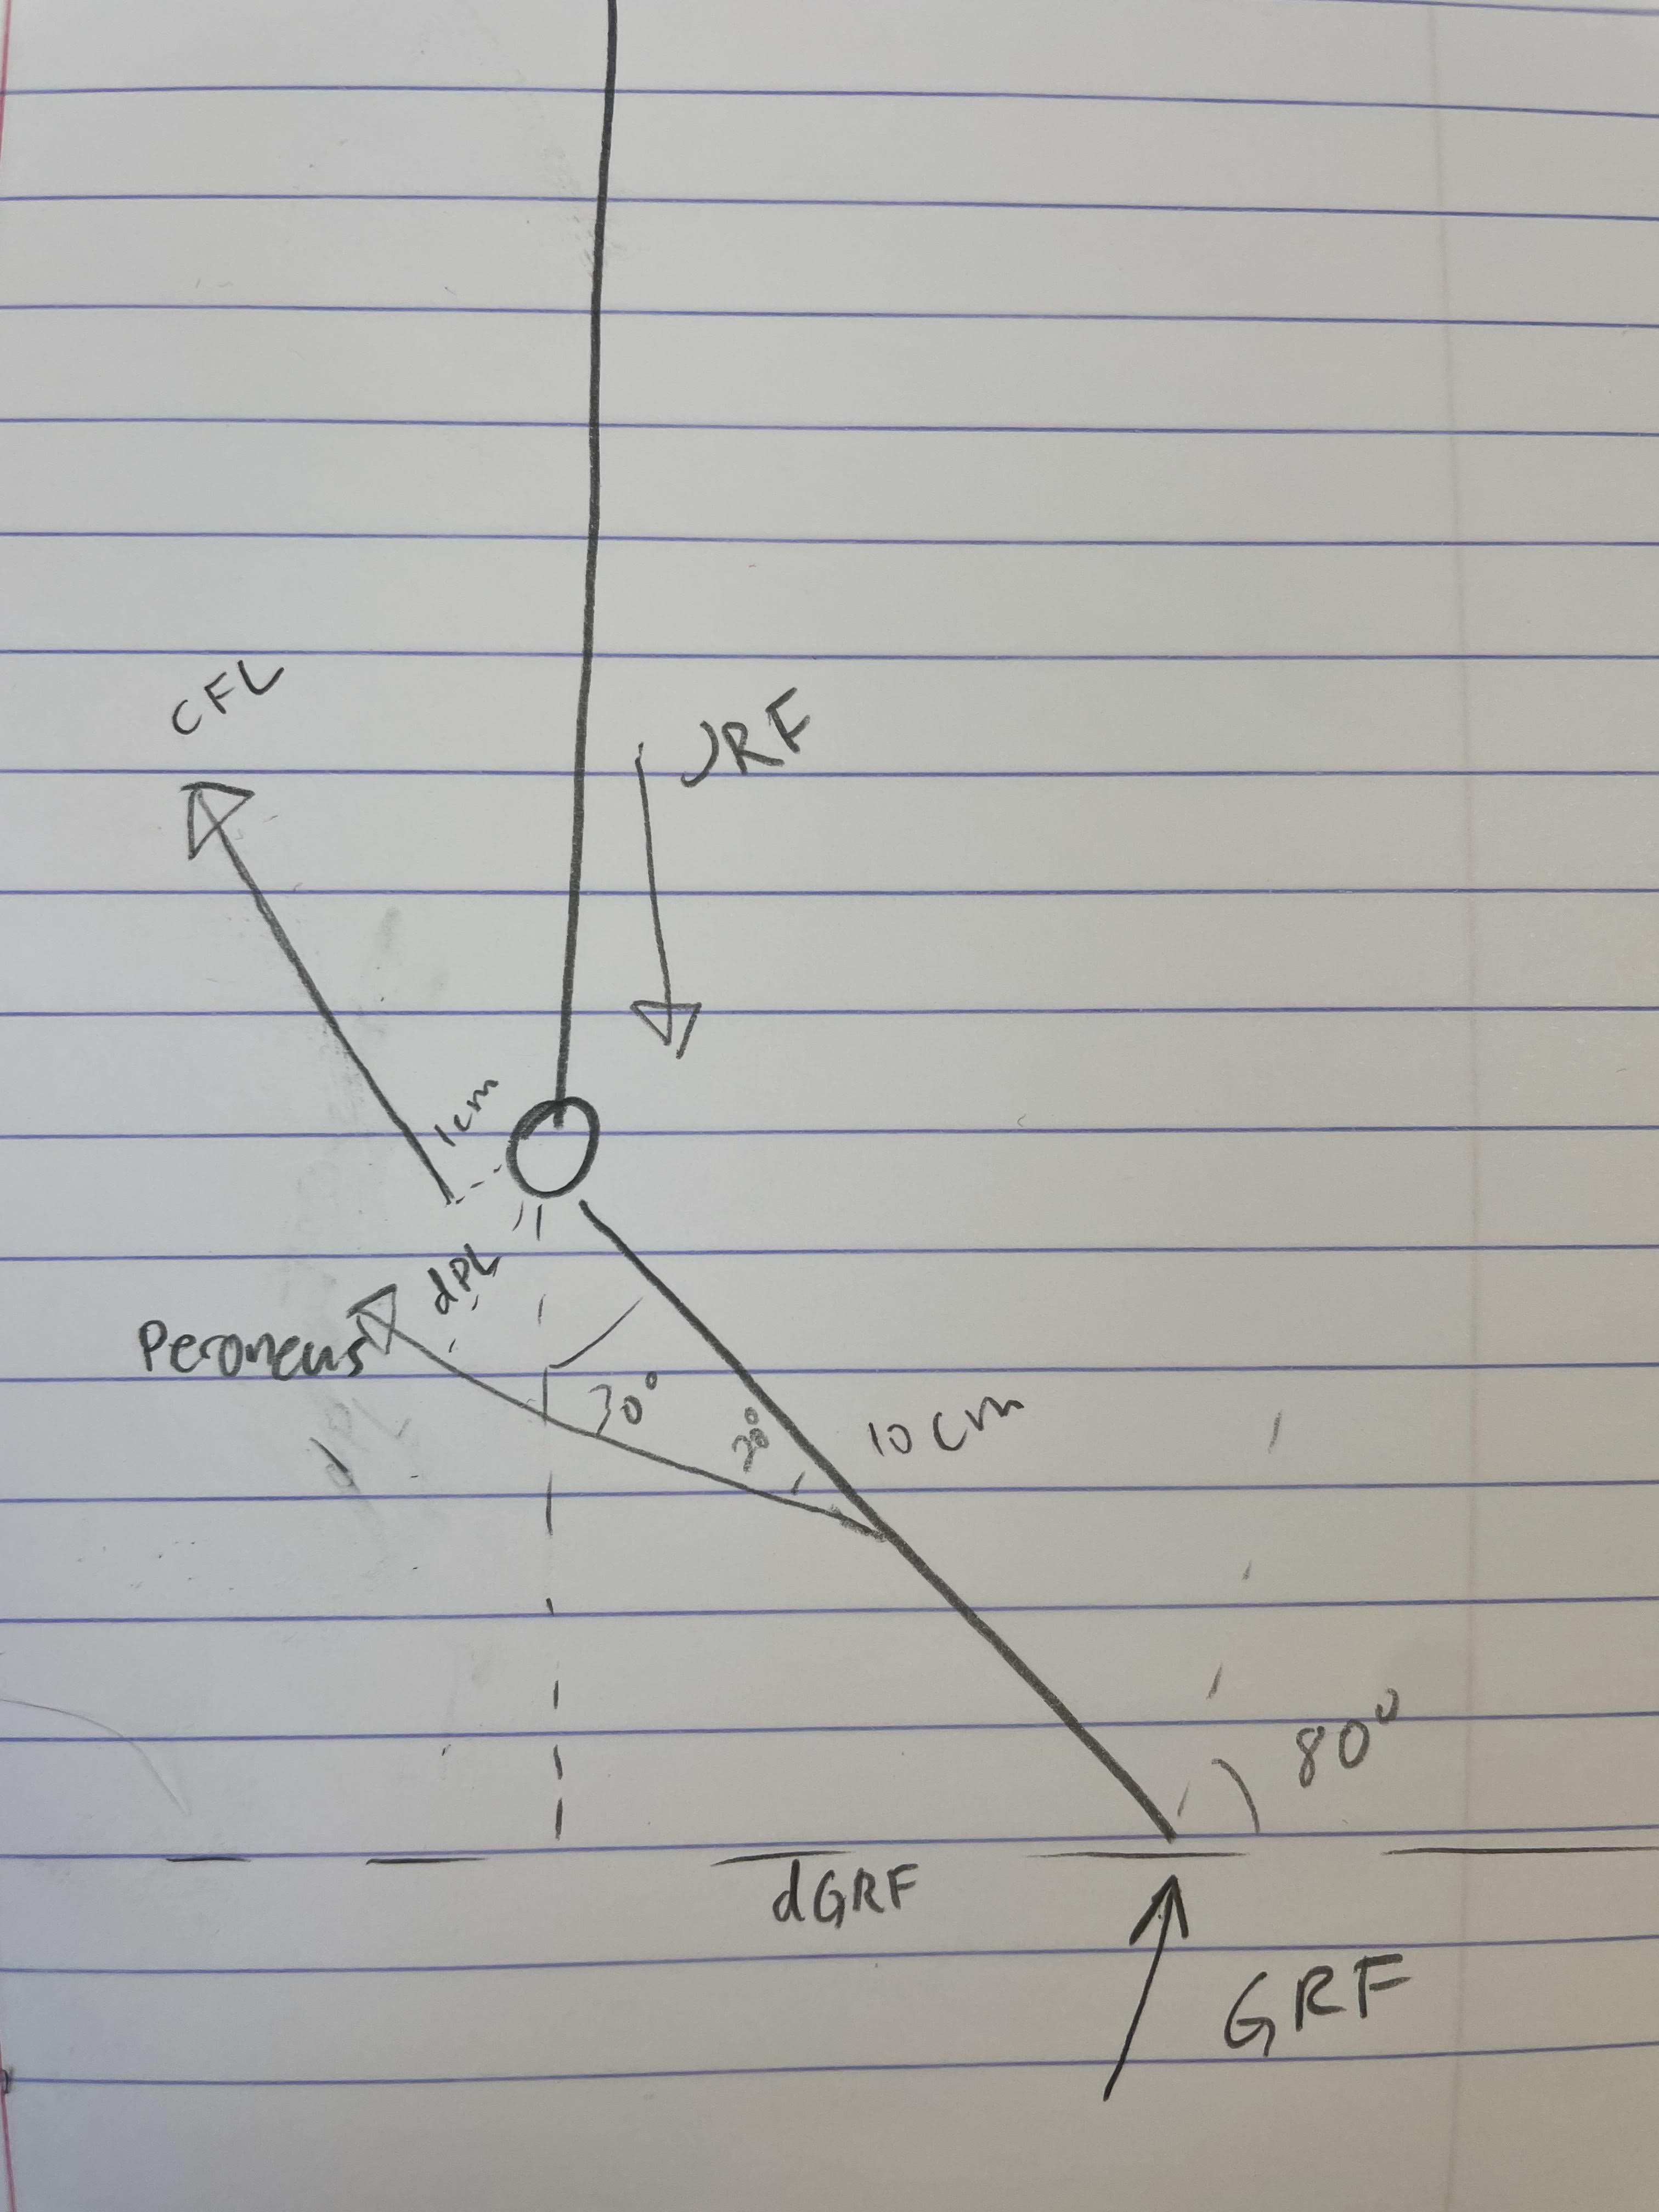 CFL
JRF
1cm
dPL
Peroneus
30°
20°
10cm
dPL
80°
dGRF
GRF